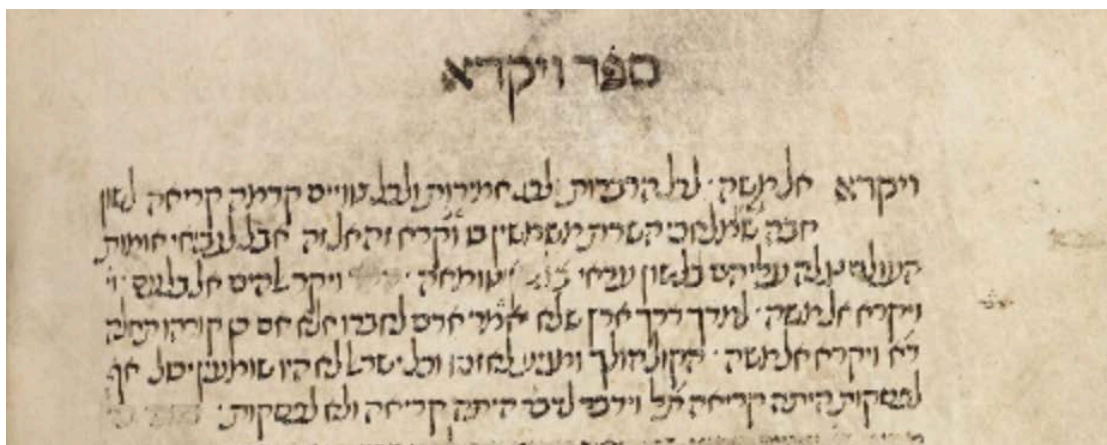 ספר ויקרא
ויקרא אל משה · לכל הדברות ולכל אמירות ולכל צוויים קדמה קריאה לשון
חבה שמלאכי השרת משתמשין בו וקרא זה אל זה אבל לנביאי אומות
העולם נגלה עליהם בלשון עראי טומאה · ויקר להים אל בלעם ·
ויקרא אל משה · למדך דרך ארץ שלא יאמר אדם לחברו אלא אם כן קורהו תחלה
ד׳א ויקרא אל משה · הקול הולך ומגיע לאזניו וכל ישר׳ לא היו שומעין יכול אף
להפסקות היתה קריאה ת׳ל וידבר לדבר היתה קריאה ולא להפסקות :